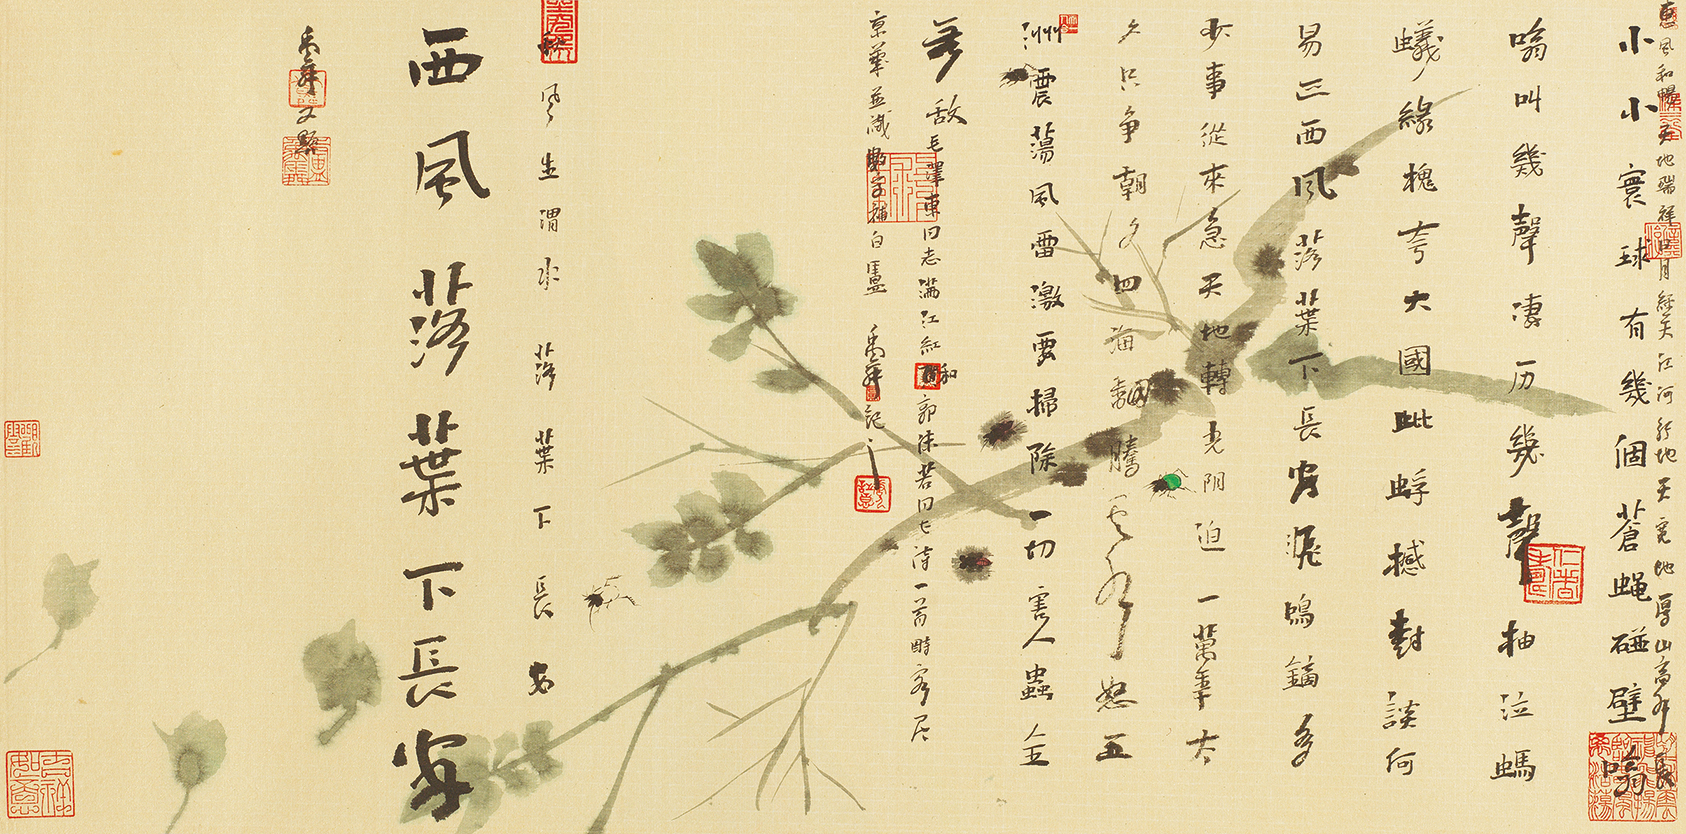 惠風和暢天地瑞祥日月經天江河行地天寬地厚山高水長
小小寰球有幾個蒼蝇碰壁嗡
嗡叫幾聲凄历幾聲抽泣螞
蟻緣槐夸大國蚍蜉撼樹談何
易正西風落葉下長安飛鳴鏑多
少事從來急天地轉光阴迫一萬年太
久只争朝夕四海翻騰雲水怒五
洲震蕩風雷激要掃除一切害人蟲全
無敌毛澤東同志滿江紅和郭沫若同志詩一首時客居
京華並識數字補白禹舜記之
秋風生渭水落葉下長安
西風落葉下長安
禹舜又題